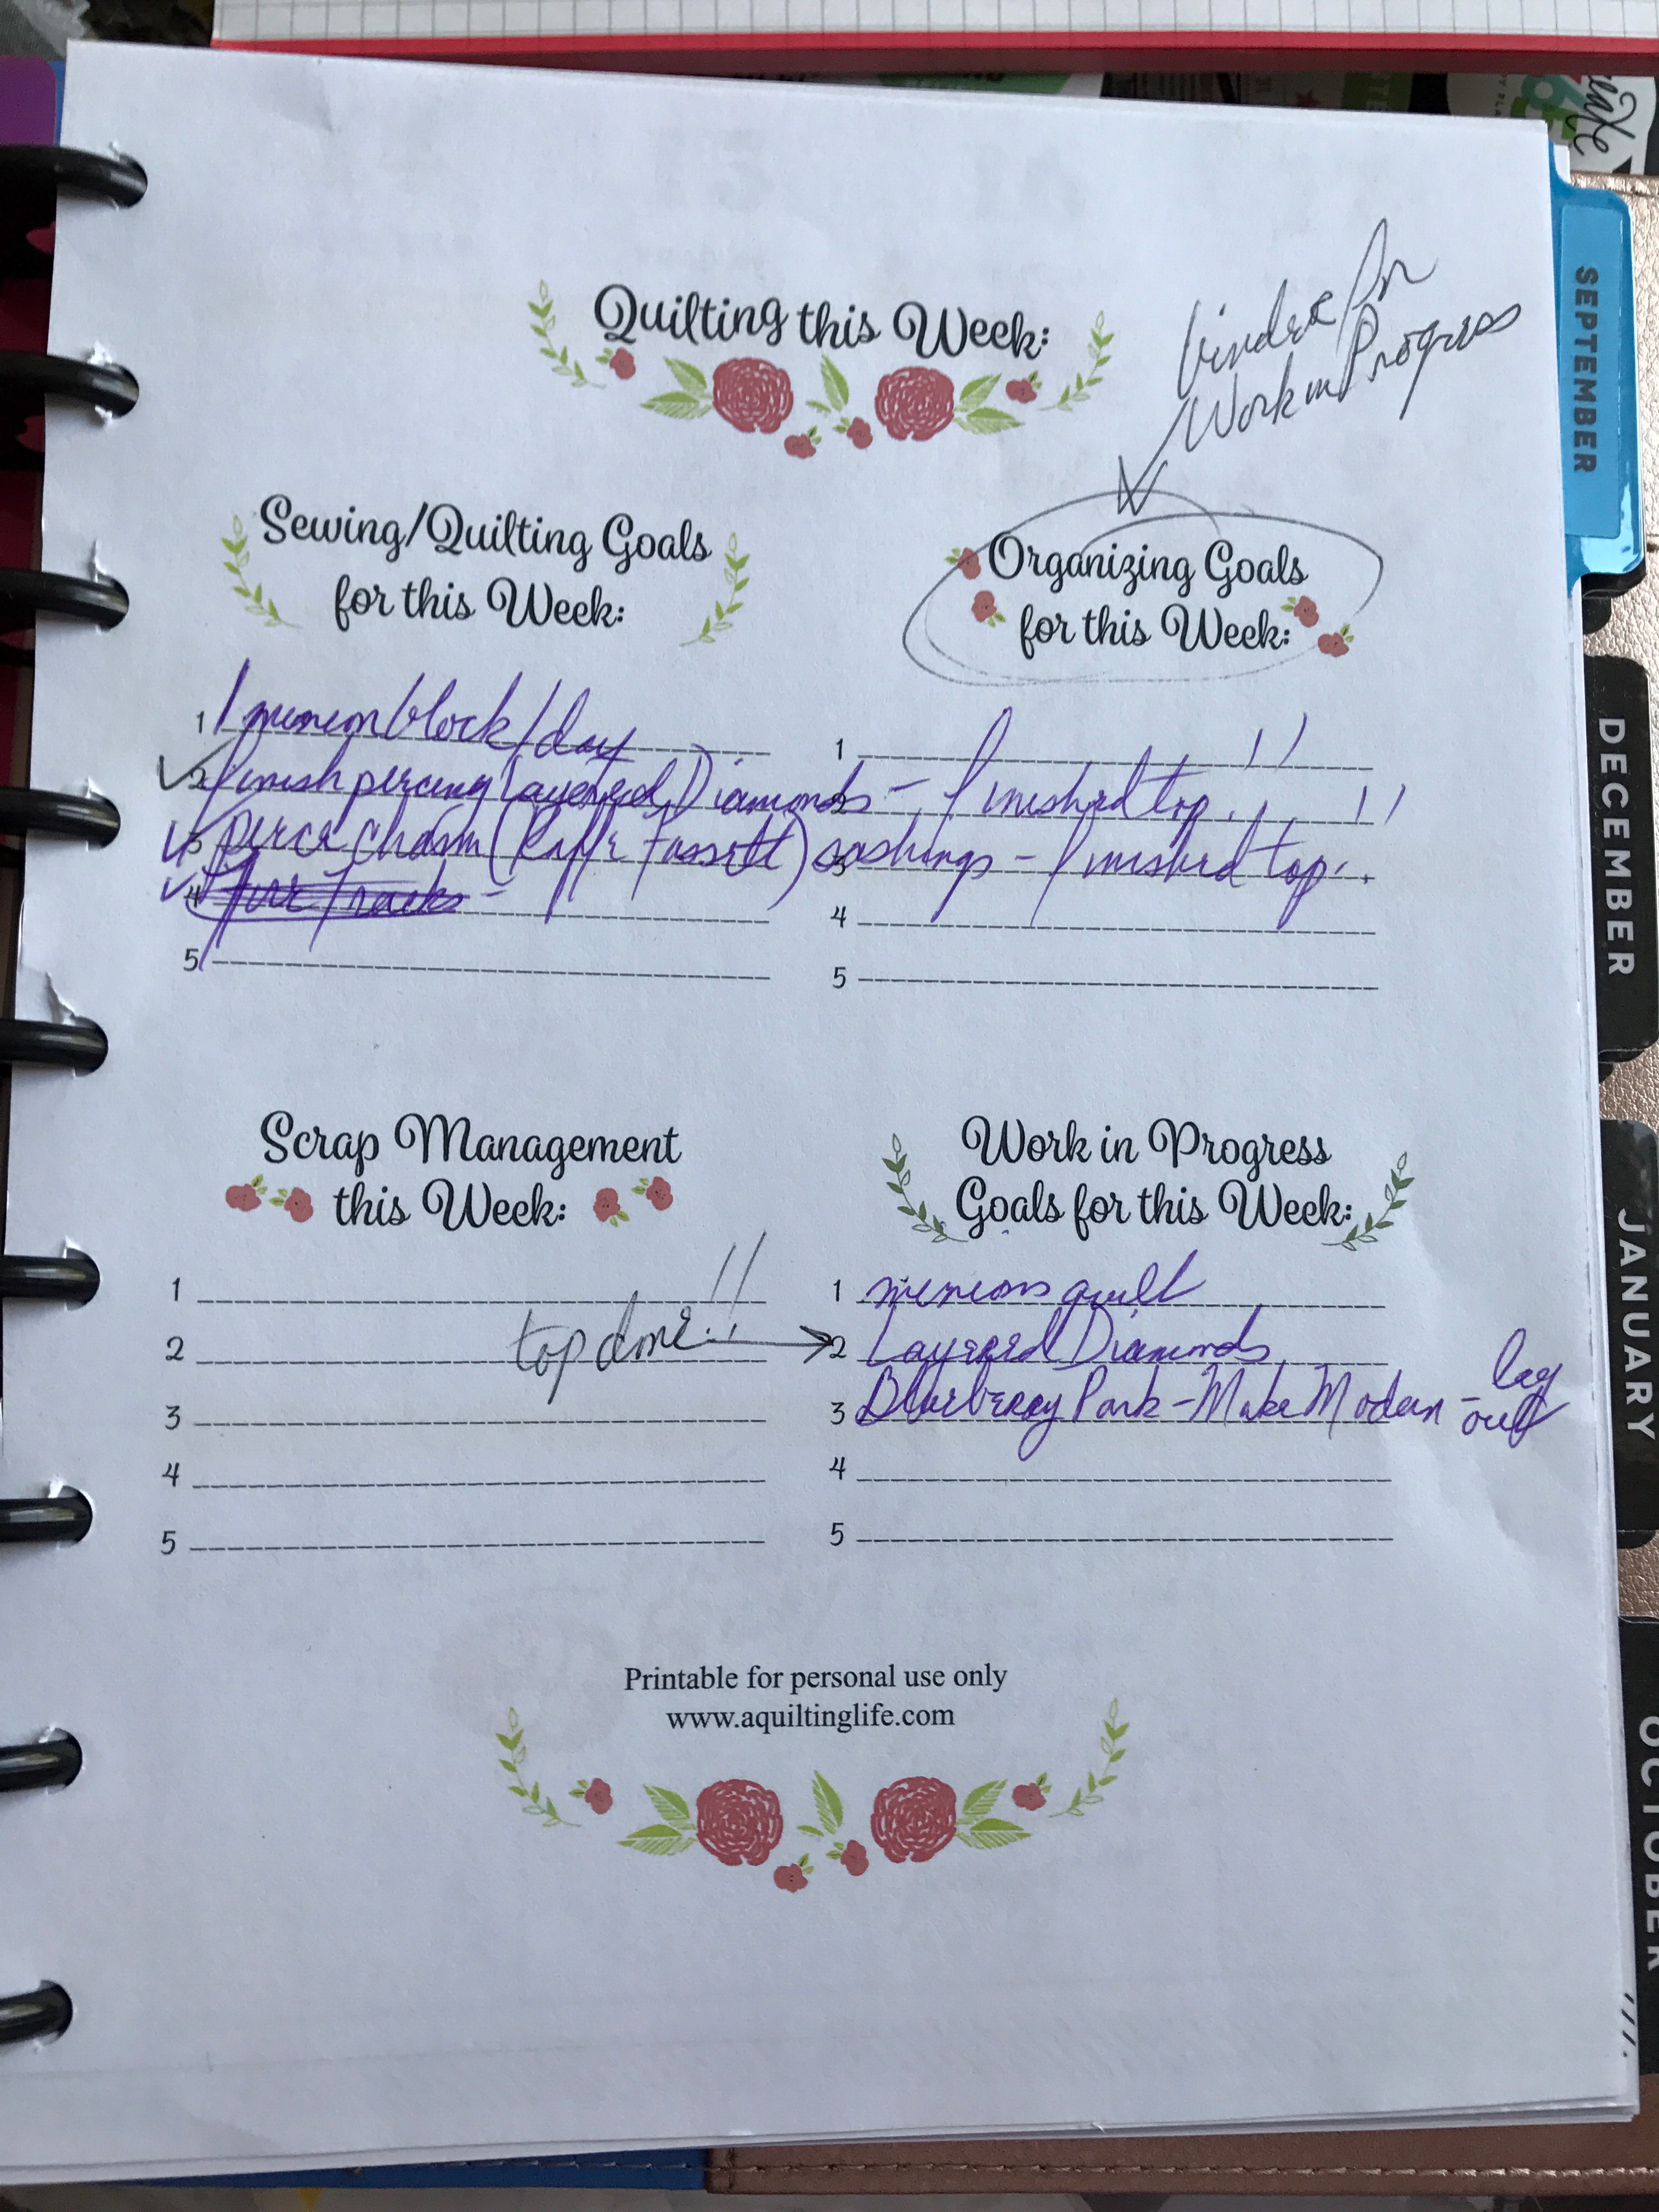 Quilting this Week:
binder for
Work in Progress
Sewing/Quilting Goals
for this Week:
Organizing Goals
for this Week:
1 1 minion block/day
2 finish piecing Layered Diamonds - finished top!!
3 piece chasm (Kaffe Fassett) sashings - finished top!!
4
5
1
2
3
4
5
Scrap Management
this Week:
1
2 top done!!
3
4
5
Work in Progress
Goals for this Week:
1 minions quilt
2 Layered Diamonds
3 Blueberry Park - Make Modern - lay
out
4
5
Printable for personal use only
www.aquiltinglife.com
SEPTEMBER
DECEMBER
JANUARY
OCTOBER